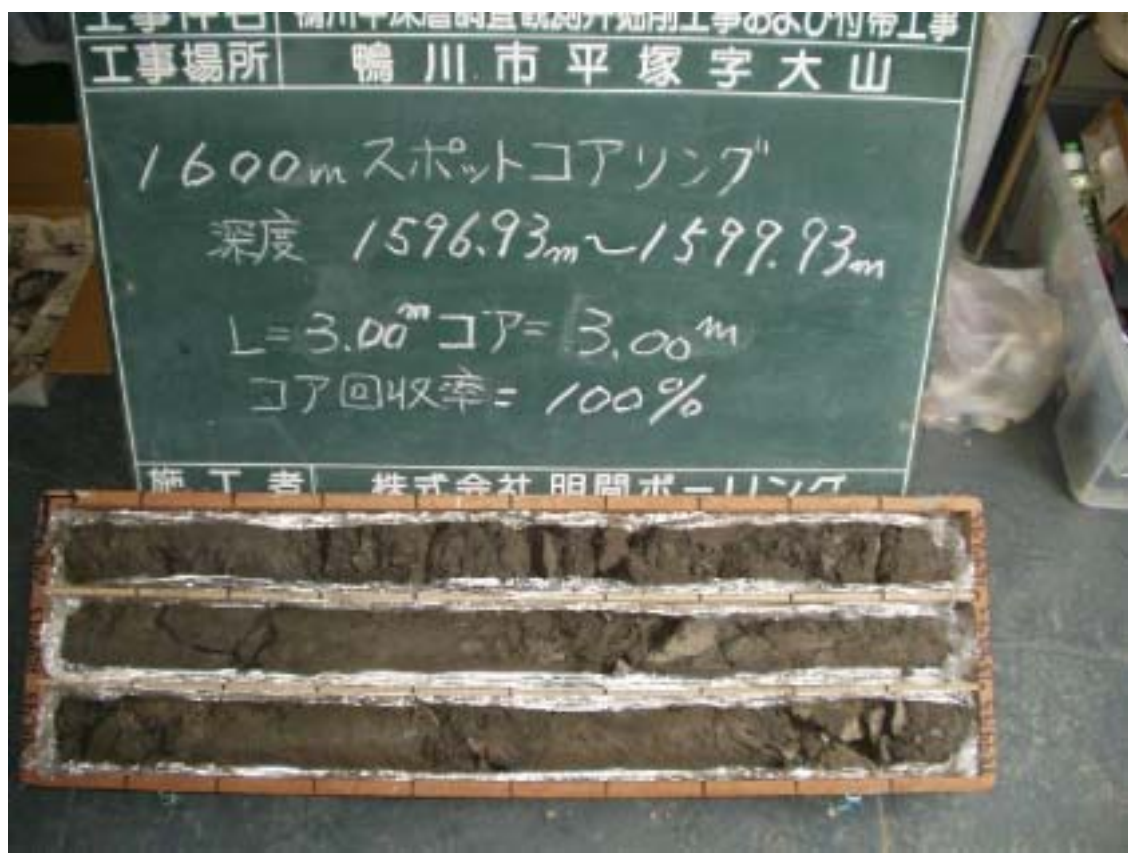 工事件名 鴨川中深層調査観測井掘削工事および付帯工事
工事場所 鴨川市平塚字大山
1600m スポットコアリング
深度 1596.93m～1599.93m
L=3.00m コア=3.00m
コア回収率=100%
施工者 株式会社 明間ボーリング